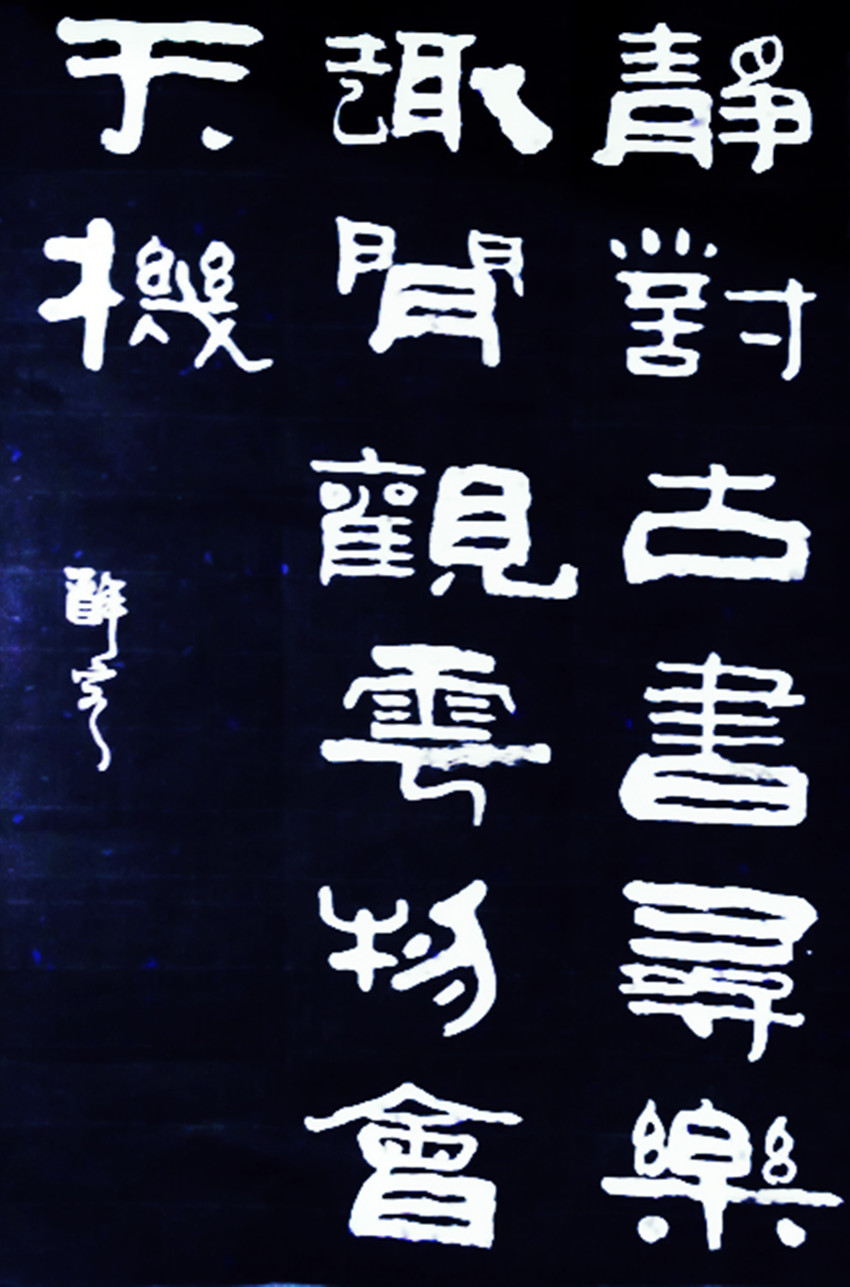 靜對古書尋樂
趣閒觀雲物會
天機
醉寃